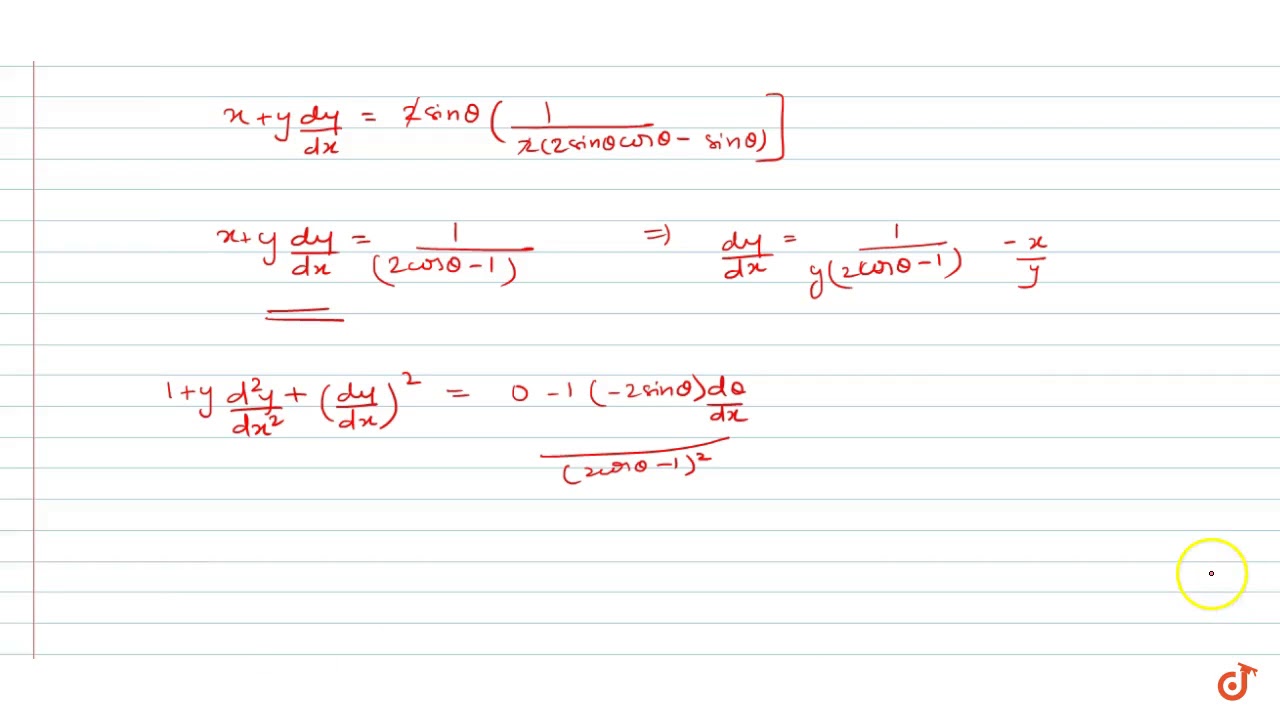 x + y dy/dx = 2sinθ ( 1 / 2(2sinθcosθ − sinθ) ]
x + y dy/dx = 1 / (2cosθ − 1) ⇒ dy/dx = 1 / y(2cosθ − 1) − x/y
1 + y d²y/dx² + (dy/dx)² = 0 − 1 (−2sinθ) dθ/dx / (2cosθ − 1)²